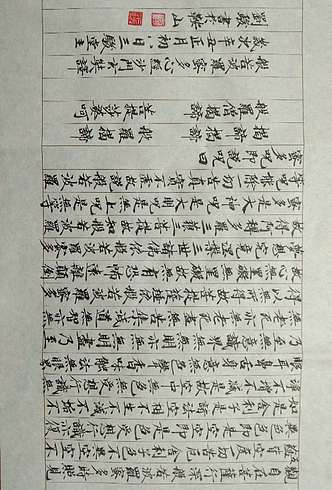 觀自在菩薩行深般若波羅蜜多時照見
五蘊皆空度一切苦厄舍利子色不異空空不
異色色即是空空即是色受想行識亦復
如是舍利子是諸法空相不生不滅不垢
不淨不增不減是故空中無色無受想行識
無眼耳鼻舌身意無色聲香味觸法無
眼界乃至無意識界無無明亦無無明盡乃至
無老死亦無老死盡無苦集滅道無智亦無
得以無所得故菩提薩埵依般若波羅蜜多
故心無罣礙無罣礙故無有恐怖遠離顛倒
夢想究竟涅槃三世諸佛依般若波羅蜜多
故得阿耨多羅三藐三菩提故知般若波羅
蜜多是大神咒是大明咒是無上咒是無等
等咒能除一切苦真實不虛故說般若波羅
蜜多咒即說咒曰
揭諦揭諦 般羅揭諦
般羅僧揭諦 菩提薩婆訶
般若波羅蜜多心經 沙門玄奘譯
歲次辛丑正月初八日三堂主
書於山